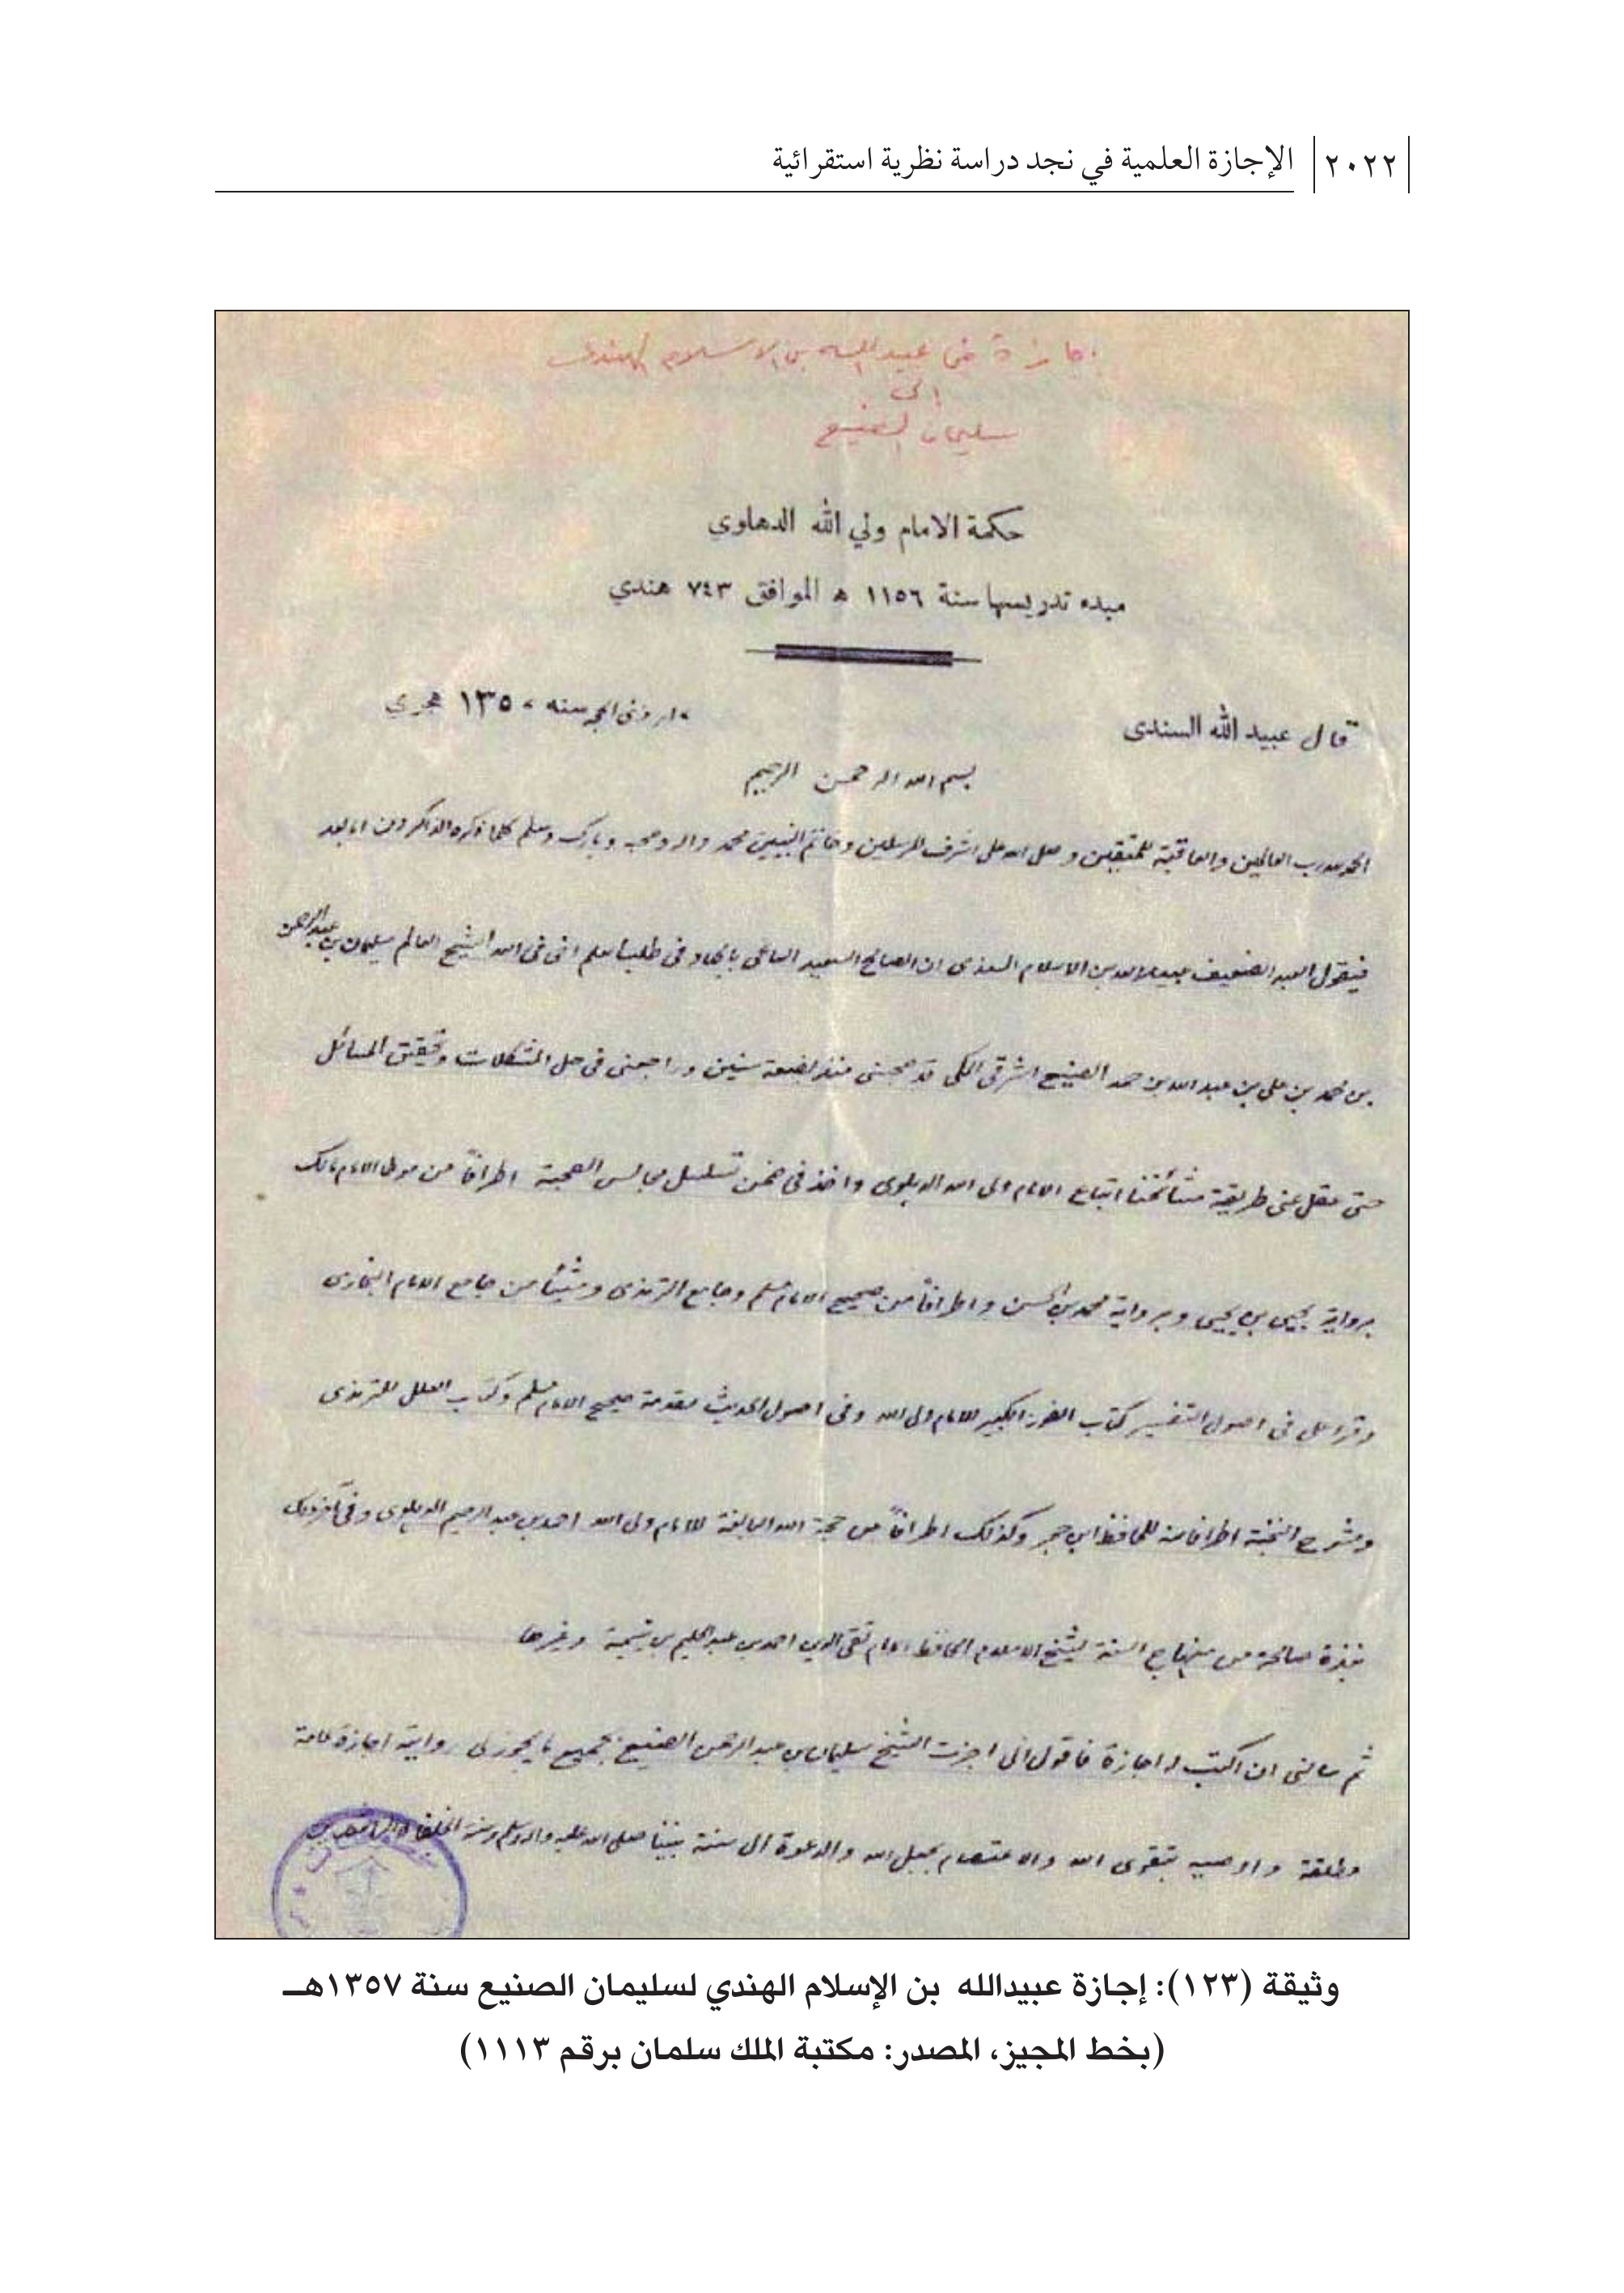 ٢٠٢٢ الإجازة العلمية في نجد دراسة نظرية استقرائية
اجازة من عبيد الله بن الاسلام الهندي
إلى
سليمان الصنيع
حكمة الامام ولي الله الدهلوي
مبدء تدريسها سنة ١١٥٦ ھ الموافق ٧٤٣ هندي
قال عبيد الله السندى
ذى الحجه سنه ١٣٥٠ هجري
بسم الله الرحمن الرحيم
الحمد لله رب العالمين والعاقبة للمتقين وصلى الله على اشرف المرسلين وخاتم النبيين محمد واله وصحبه وبارك وسلم كلما ذكره الذاكرون اما بعد
فيقول العبد الضعيف عبيد الله بن الاسلام السندى ان الصالح السعيد الساعى بالجهد فى طلب العلم اخى فى الله الشيخ العالم سليمان بن عبد الرحمن
بن محمد بن على بن عبد الله بن حمد الصنيع المكى قد صحبنى منذ بضعة سنين وراجعنى فى حل المشكلات وتحقيق المسائل
حتى عقل عنى طريقة مشائخنا اتباع الامام ولى الله الدهلوى واخذ فى ضمن تسلسل مجالس الصحبة اطرافاً من موطا الامام مالك
برواية يحيى بن يحيى وبرواية محمد بن الحسن واطرافاً من صحيح الامام مسلم وجامع الترمذى وشيئاً من جامع الامام البخارى
وقرا على فى اصول التفسير كتاب الفوز الكبير للامام ولى الله وفى اصول الحديث مقدمة صحيح الامام مسلم وكتاب العلل للترمذى
وشرح النخبة اطرافا منه للحافظ ابن حجر وكذلك اطرافاً من حجة الله البالغة للامام ولى الله احمد بن عبد الرحيم الدهلوى وفى آخر ذلك
نبذة صالحة من منهاج السنة لشيخ الاسلام الحافظ الامام تقى الدين احمد بن عبد الحليم بن تيمية وغيرها
ثم سالنى ان اكتب له اجازة فاقول انى اجزت الشيخ سليمان بن عبد الرحمن الصنيع بجميع ما يجوز لى روايته اجازة عامة
مطلقة واوصيه بتقوى الله والاعتصام بحبل الله والدعوة الى سنة نبينا صلى الله عليه واله وسلم وسنة الخلفاء الراشدين
وثيقة (١٢٣): إجازة عبيدالله بن الإسلام الهندي لسليمان الصنيع سنة ١٣٥٧هـ
(بخط المجيز، المصدر: مكتبة الملك سلمان برقم ١١١٣)